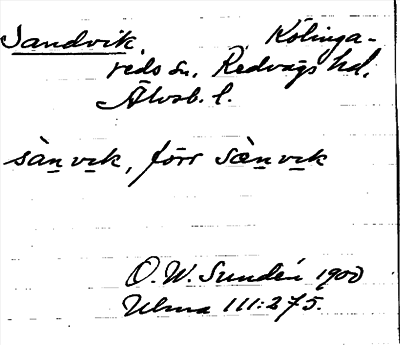 Sandvik Kölinga-
reds sn. Redvägs hd.
Älvsb. l.
sàn vik, förr sæ̀n vik
O. W. Sundén 1900
Ulma 111:275.